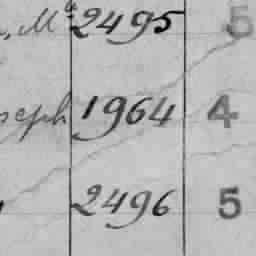 , Mᵃ 2495 5
seph 1964 4
2496 5